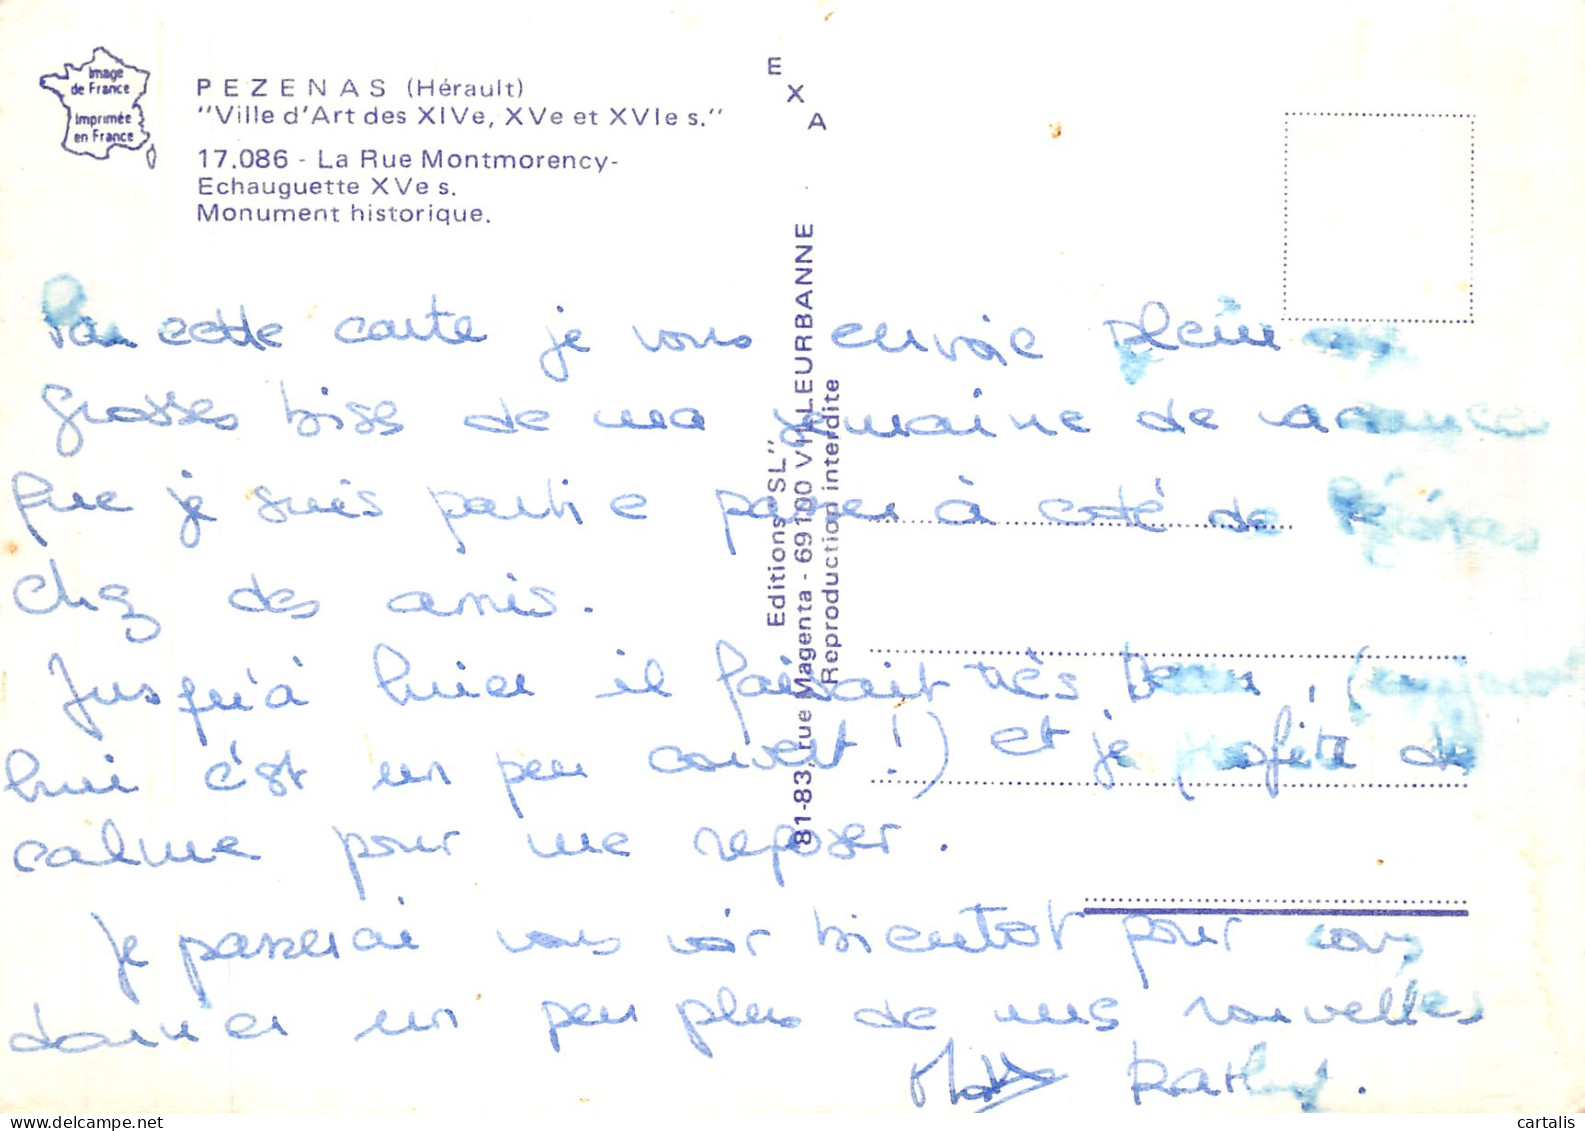 Image
de France
Imprimée
en France
PEZENAS (Hérault)
"Ville d'Art des XIVe, XVe et XVIe s."
17.086 - La Rue Montmorency-
Echauguette XVe s.
Monument historique.
EXA
Editions "SL"
81-83, rue Magenta - 69100 VILLEURBANNE
Reproduction interdite
Par cette carte je vous envoie plein de
grosses bise de ma semaine de vacances
que je suis partie passer à coté de Pézénas
chez des amis.
Jusqu'à hier il faisait très beau, (aujourd
hui c'est un peu couvert !) et je profite du
calme pour me reposer.
Je passerai vous voir bientot pour vous
donner un peu plus de mes nouvelles
Kathy.
cartalis